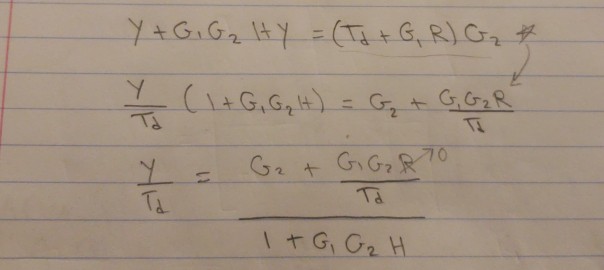 Y + G₁G₂HY = (T_d + G₁R) G₂ *
Y/T_d (1 + G₁G₂H) = G₂ + G₁G₂R/T_d
Y/T_d = (G₂ + G₁G₂R/T_d →0) / (1 + G₁G₂H)